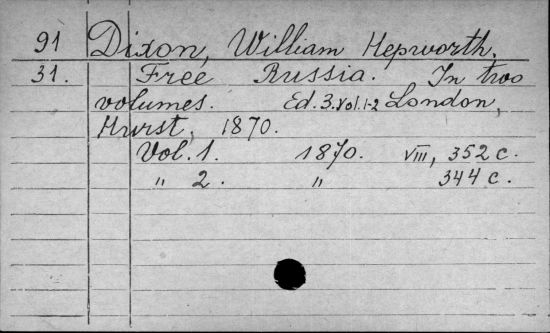 91 Dixon, William Hepworth.
31. Free Russia. In two
volumes. Ed. 3. Vol. 1-2 London,
Hurst, 1870.
Vol. 1. 1870. VIII, 352 c.
" 2. " 344 c.